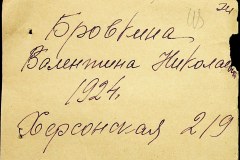 Бровкина
Валентина Николаевна
1924.
Херсонская 219